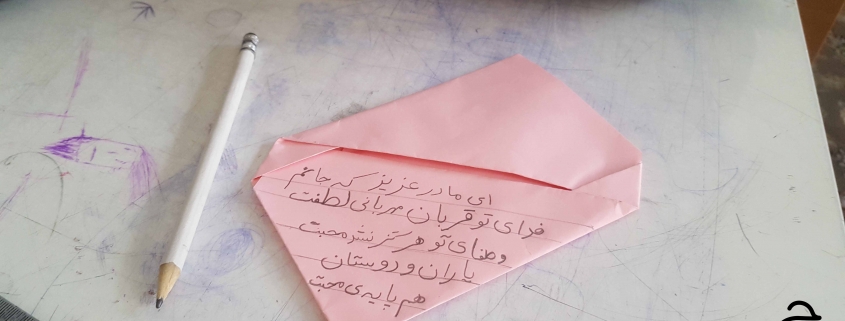 ای مادر عزیز که جانم
فدای تو قربان مهربانی لطفت
وفای تو هرگز نشد محبت
یاران و دوستان
هم پایه‌ی محبت